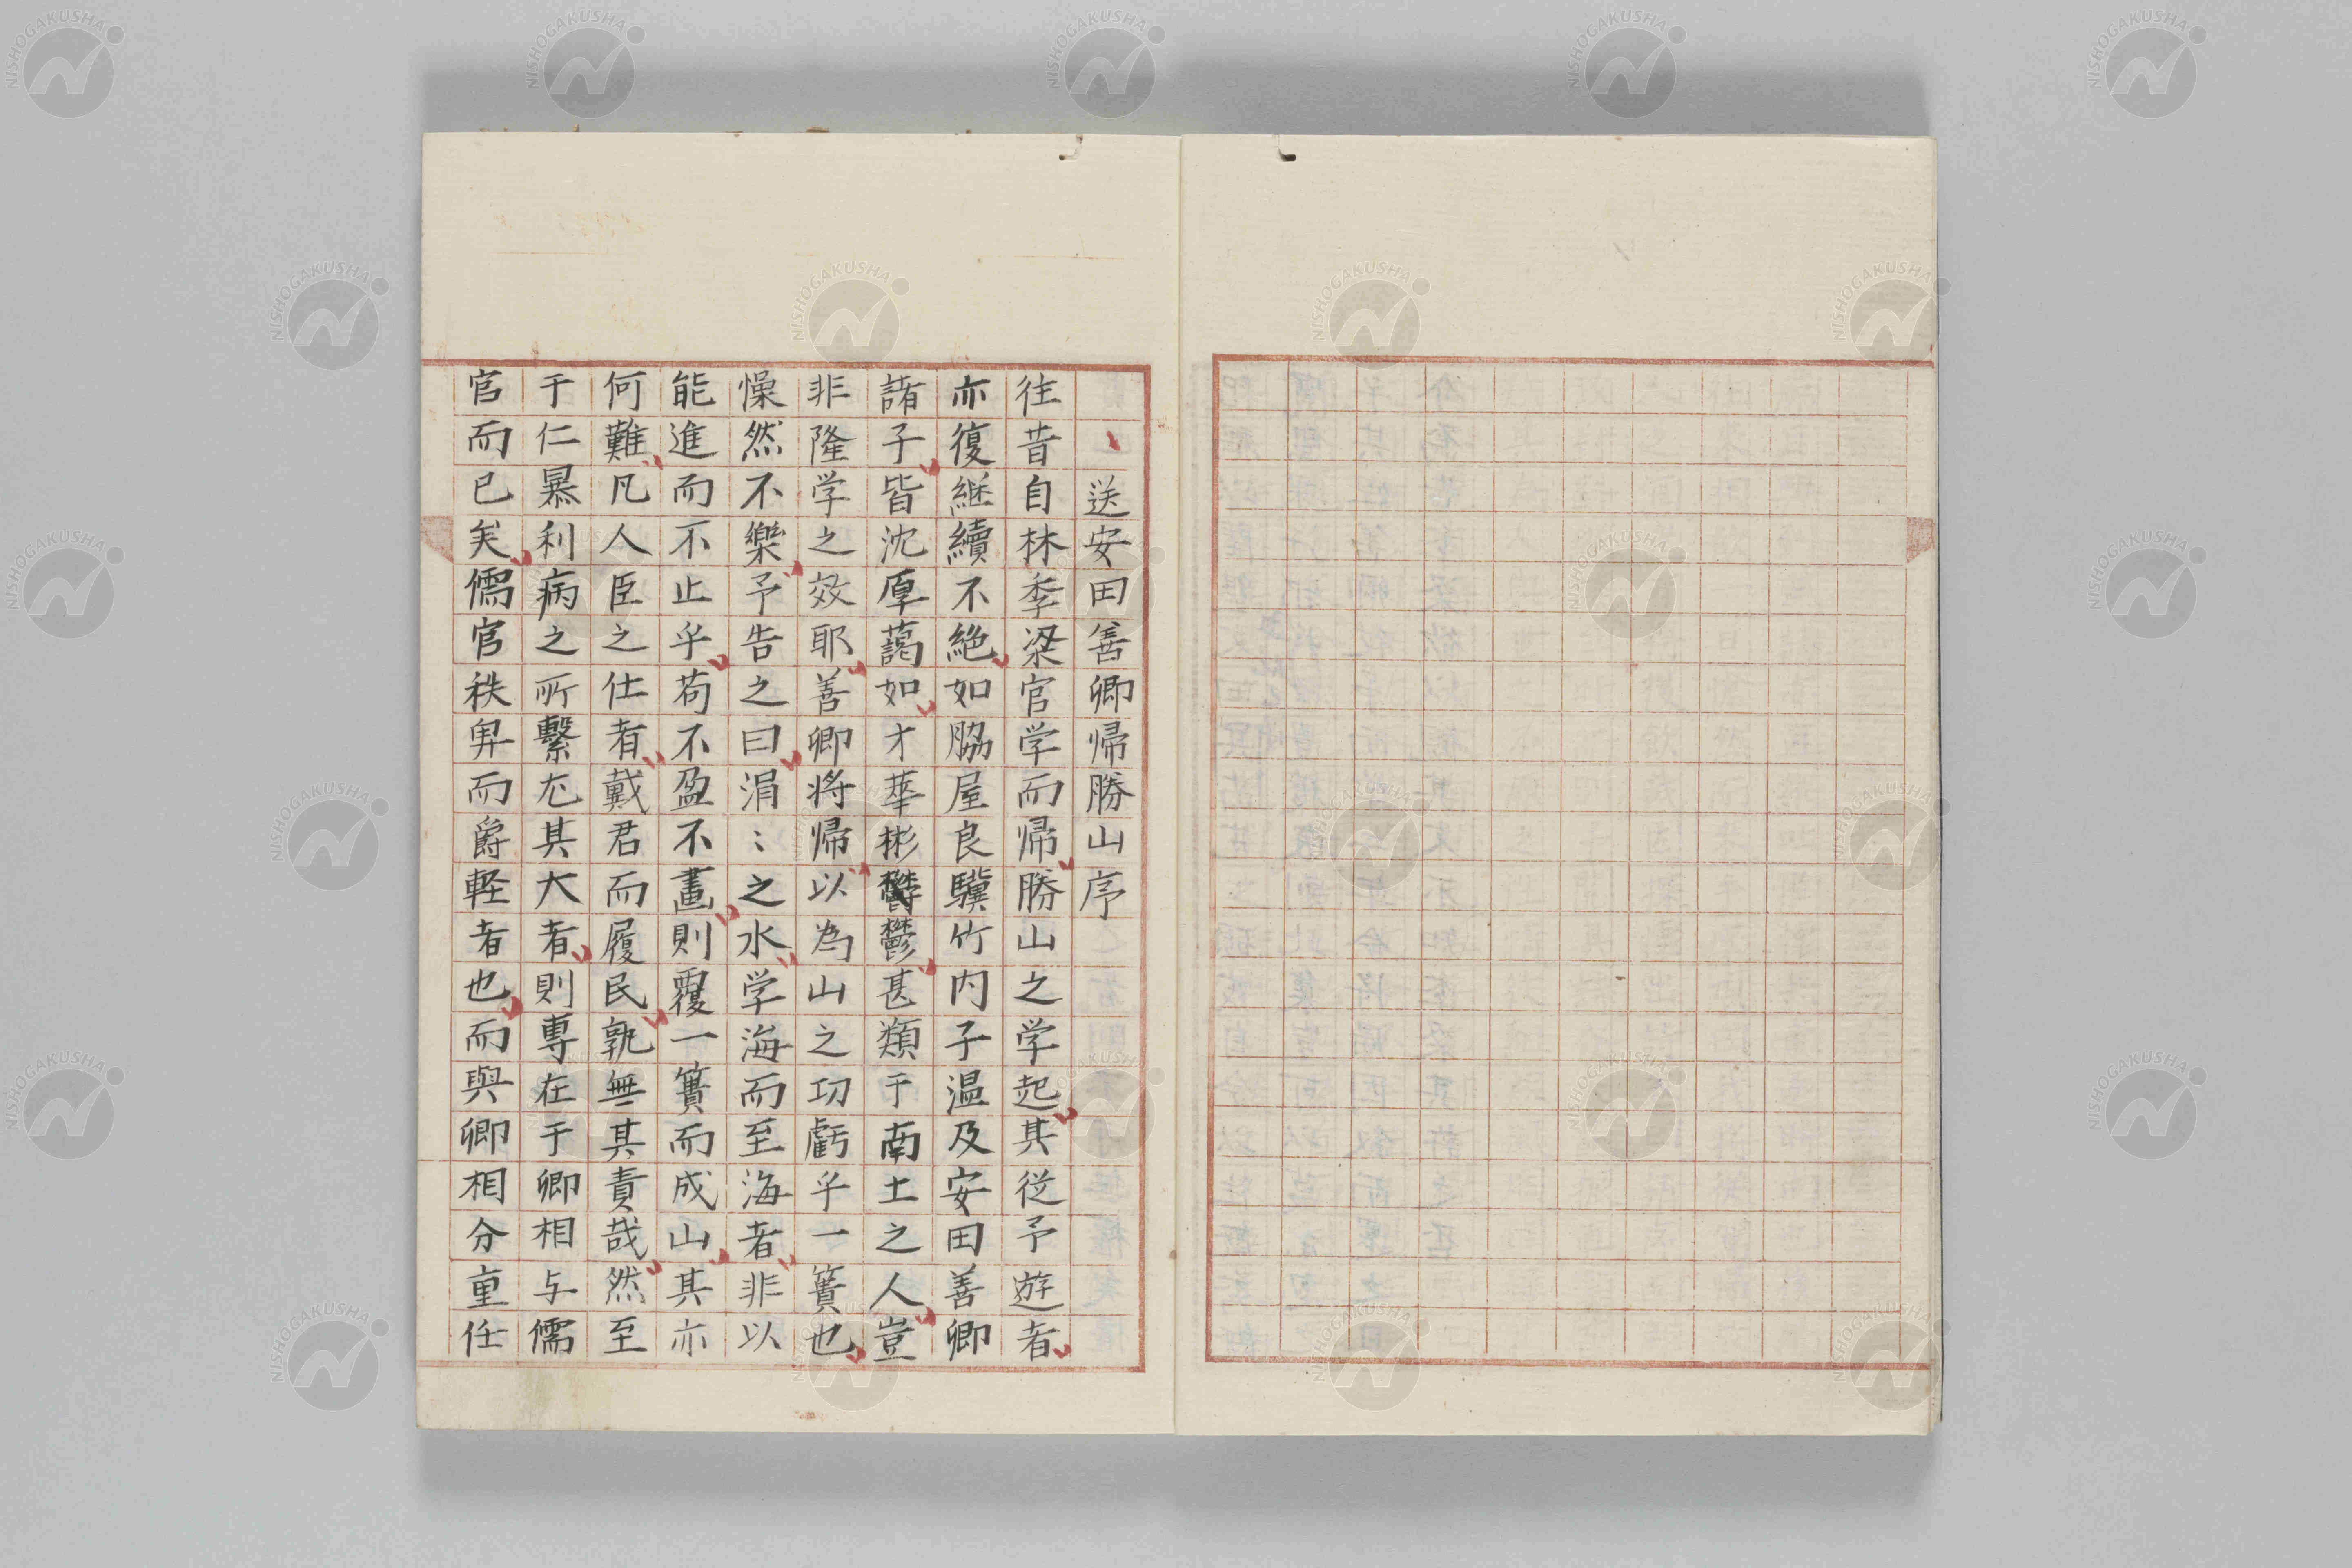 送安田善卿帰勝山序
往昔自林季梁官学而帰勝山之学起其従予遊者
亦復継續不絶如脇屋良驥竹内子温及安田善卿
諸子皆沈厚藹如才華彬鬱甚類于南土之人豈
非隆学之效耶善卿将帰以為山之功虧乎一簣也
懆然不樂予告之曰涓〻之水学海而至海者非以
能進而不止乎苟不盈不畫則覆一簣而成山其亦
何難凡人臣之仕者戴君而履民孰無其責哉然至
于仁暴利病之所繋尤其大者則専在于卿相与儒
官而已矣儒官秩卑而爵軽者也而與卿相分重任
NISHOGAKUSHA